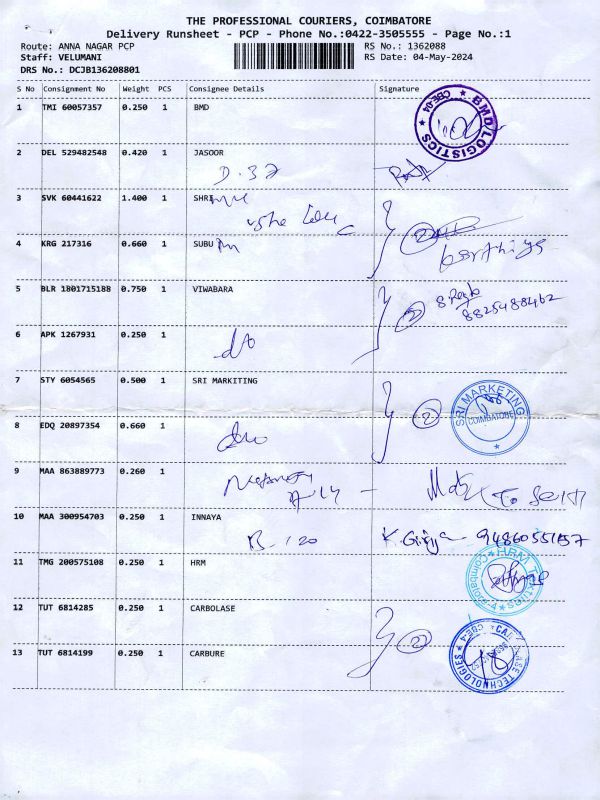 THE PROFESSIONAL COURIERS, COIMBATORE
Delivery Runsheet - PCP - Phone No.:0422-3505555 - Page No.:1
Route: ANNA NAGAR PCP RS No.: 1362088
Staff: VELUMANI RS Date: 04-May-2024
DRS No.: DCJB136208801
S No Consignment No Weight PCS Consignee Details Signature
1 TMI 60057357 0.250 1 BMD
BMD LOGISTICS ★ CBE-04 ★
2 DEL 529482548 0.420 1 JASOOR
D.32
3 SVK 60441622 1.400 1 SHRI
4 KRG 217316 0.660 1 SUBU
2
5 BLR 1801715188 0.750 1 VIWABARA
2 8825488462
6 APK 1267931 0.250 1
7 STY 6054565 0.500 1 SRI MARKITING
2 SRI MARKETING COIMBATORE ★
8 EDQ 20897354 0.660 1
9 MAA 863889773 0.260 1
10 MAA 300954703 0.250 1 INNAYA
B.120 K. Girija 9486055157
11 TMG 200575108 0.250 1 HRM
12 TUT 6814285 0.250 1 CARBOLASE
2
13 TUT 6814199 0.250 1 CARBURE
18